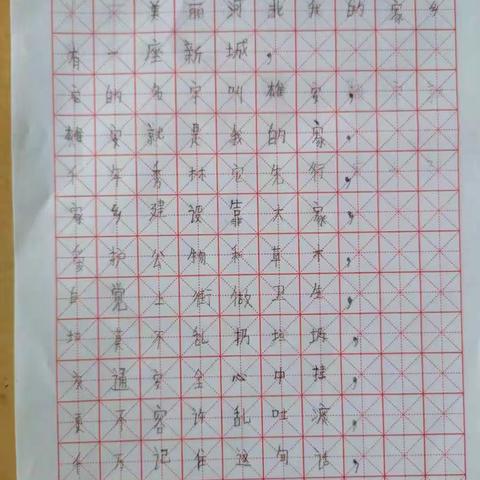 美丽河北我的家乡
有一座新城，
它的名字叫雄安，
雄安就是我的家。
千年秀林它先行，
家乡建设靠大家，
爱护公物和草木，
自觉上街做卫生，
垃真不乱扔垃圾，
交通安全心中挂，
更不容许乱吐痰，
千万记住这句话，